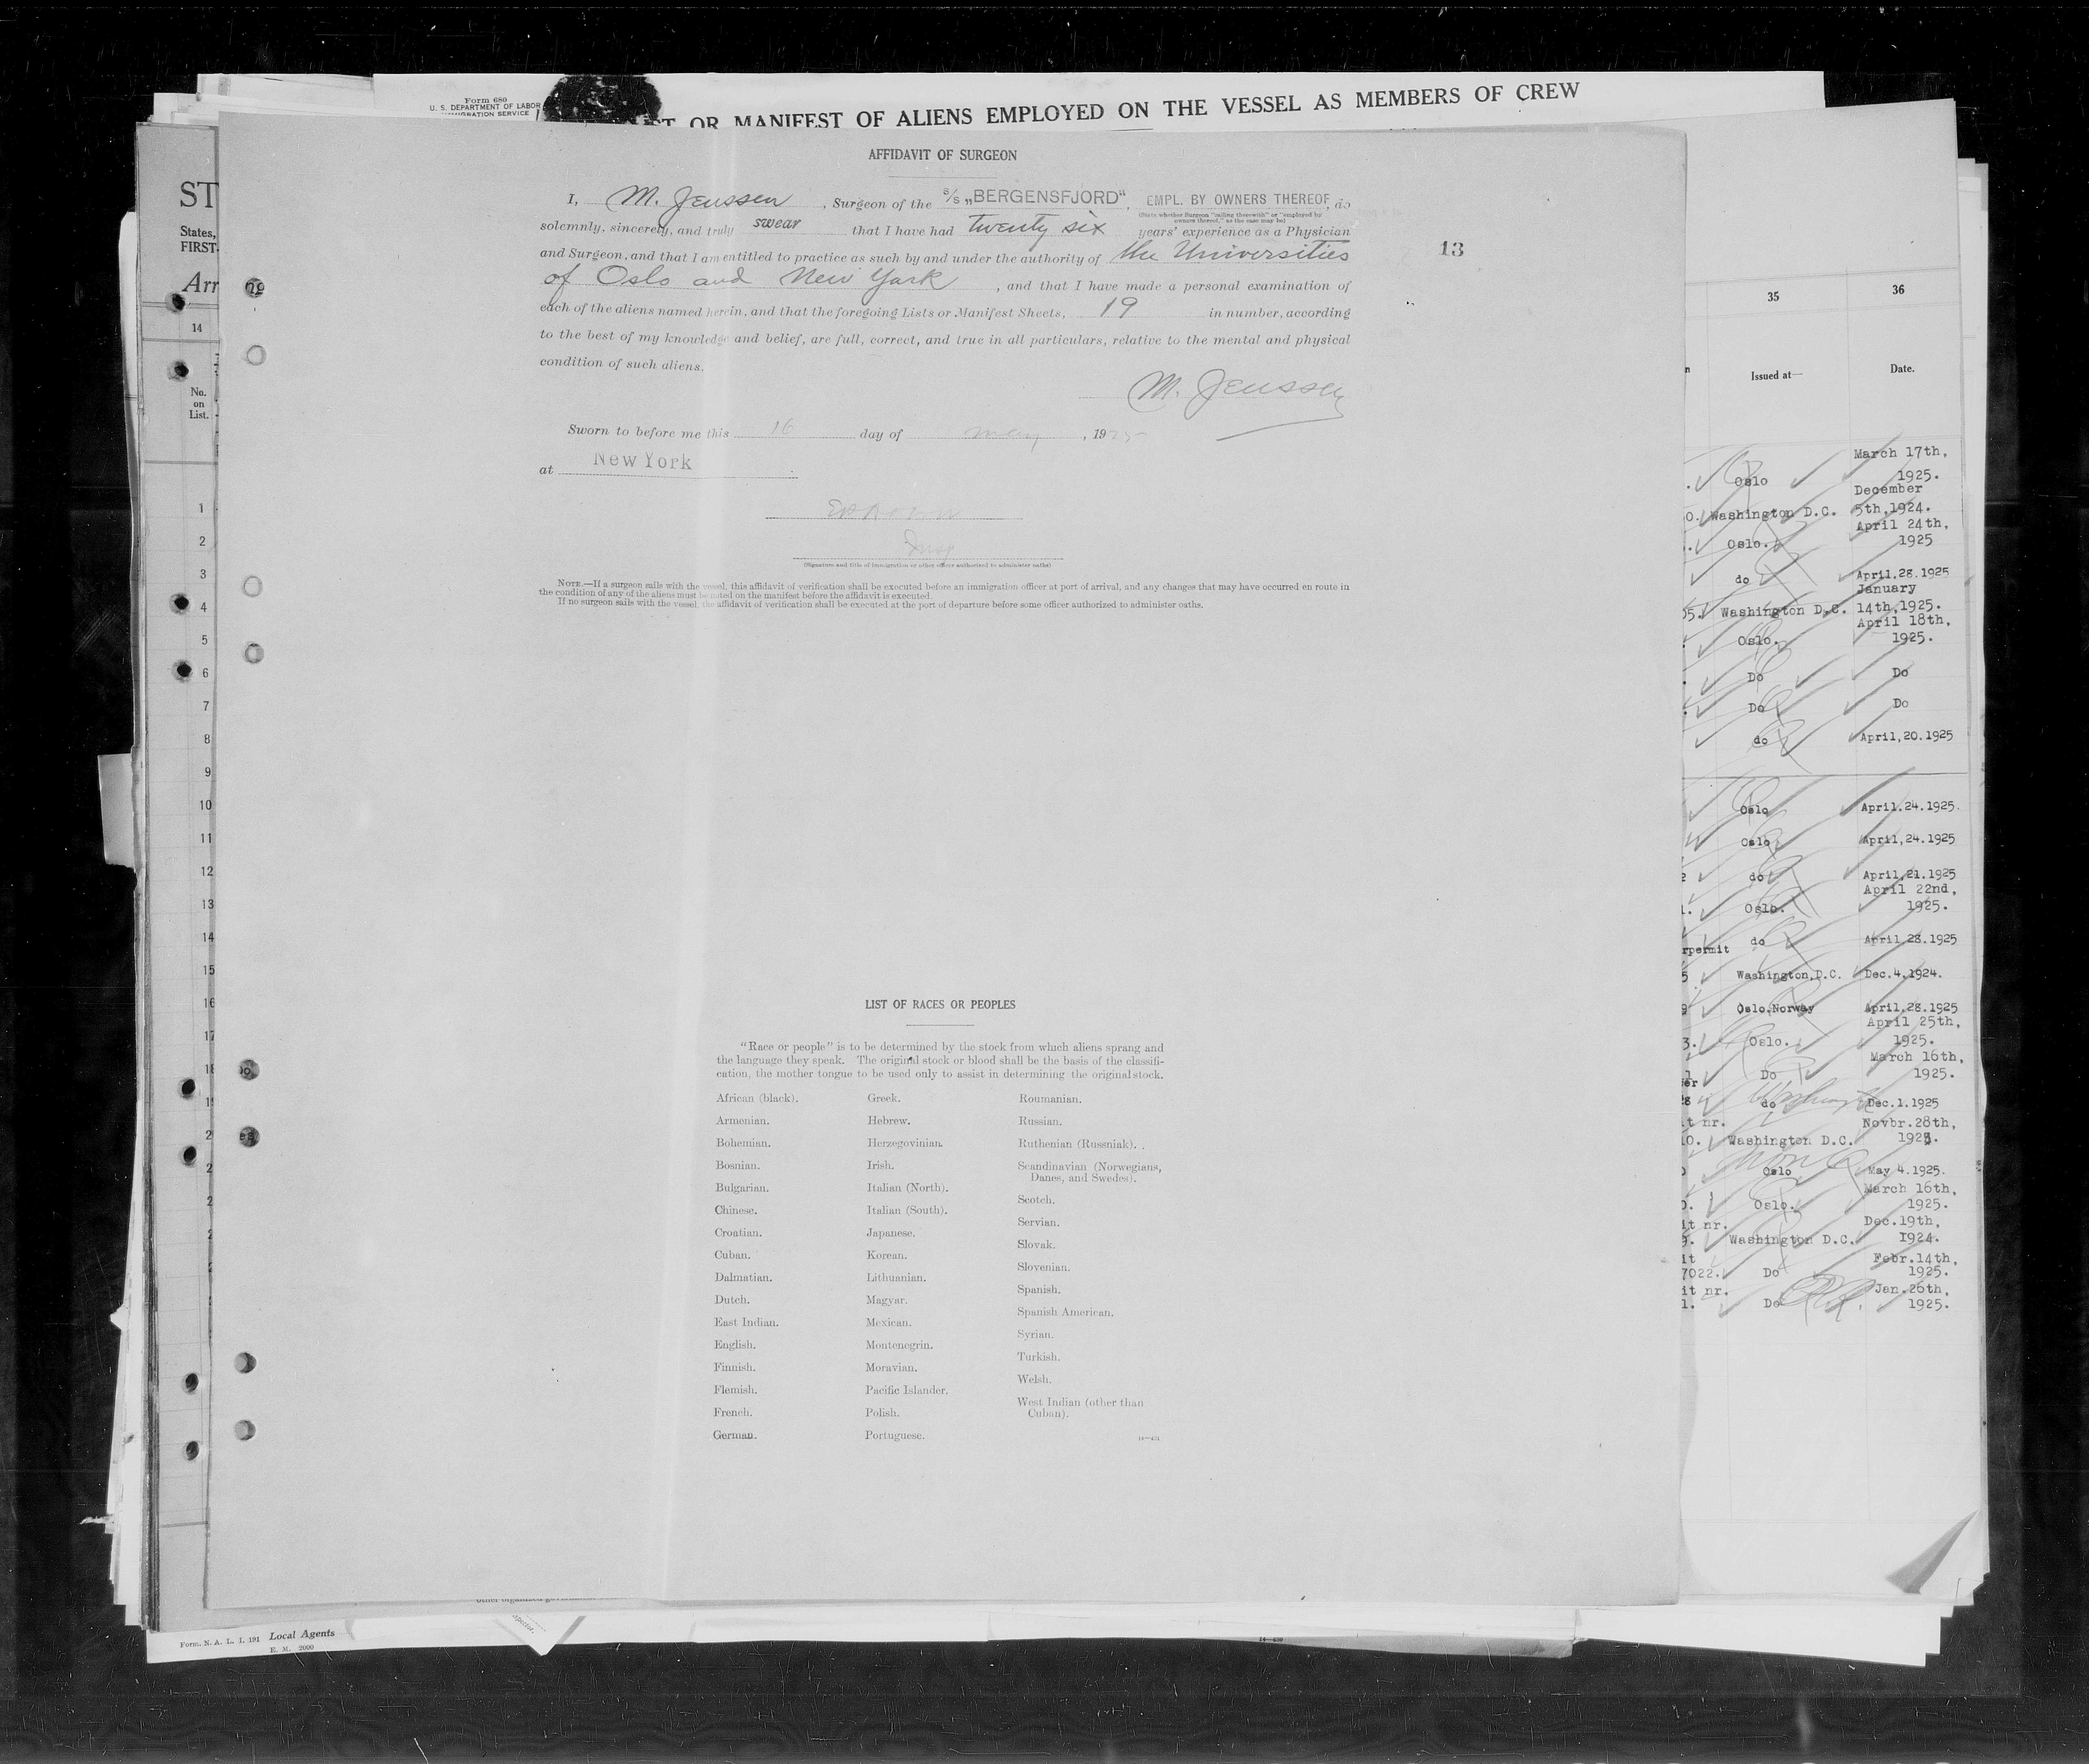 Form 680
U. S. DEPARTMENT OF LABOR
IMMIGRATION SERVICE
OR MANIFEST OF ALIENS EMPLOYED ON THE VESSEL AS MEMBERS OF CREW
ST
States,
FIRST-
Arr
14
No.
on
List.
1
2
3
4
5
6
7
8
9
10
11
12
13
14
15
16
17
AFFIDAVIT OF SURGEON
I, M. Jenssen , Surgeon of the s/s „BERGENSFJORD“, EMPL. BY OWNERS THEREOF, do
(State whether Surgeon "sailing therewith" or "employed by
owners thereof," as the case may be)
solemnly, sincerely, and truly swear that I have had twenty six years' experience as a Physician
and Surgeon, and that I am entitled to practice as such by and under the authority of the Universities
of Oslo and New York , and that I have made a personal examination of
each of the aliens named herein, and that the foregoing Lists or Manifest Sheets, 19 in number, according
to the best of my knowledge and belief, are full, correct, and true in all particulars, relative to the mental and physical
condition of such aliens.
M. Jenssen
Sworn to before me this 16 day of May , 1925
at New York
Insp
(Signature and title of immigration or other officer authorized to administer oaths)
NOTE.—If a surgeon sails with the vessel, this affidavit of verification shall be executed before an immigration officer at port of arrival, and any changes that may have occurred en route in
the condition of any of the aliens must be noted on the manifest before the affidavit is executed.
If no surgeon sails with the vessel, the affidavit of verification shall be executed at the port of departure before some officer authorized to administer oaths.
13
LIST OF RACES OR PEOPLES
"Race or people" is to be determined by the stock from which aliens sprang and
the language they speak. The original stock or blood shall be the basis of the classifi-
cation, the mother tongue to be used only to assist in determining the original stock.
African (black).
Armenian.
Bohemian.
Bosnian.
Bulgarian.
Chinese.
Croatian.
Cuban.
Dalmatian.
Dutch.
East Indian.
English.
Finnish.
Flemish.
French.
German.
Greek.
Hebrew.
Herzegovinian.
Irish.
Italian (North).
Italian (South).
Japanese.
Korean.
Lithuanian.
Magyar.
Mexican.
Montenegrin.
Moravian.
Pacific Islander.
Polish.
Portuguese.
Roumanian.
Russian.
Ruthenian (Russniak).
Scandinavian (Norwegians,
Danes, and Swedes).
Scotch.
Servian.
Slovak.
Slovenian.
Spanish.
Spanish American.
Syrian.
Turkish.
Welsh.
West Indian (other than
Cuban).
14—431
35 36
Issued at— Date.
March 17th,
Oslo 1925.
December
0. Washington D.C. 5th,1924.
April 24th,
Oslo. 1925
do April.28.1925
January
05. Washington D.C. 14th,1925.
April 18th,
Oslo. 1925.
Do Do
Do Do
do April,20.1925
Oslo April.24.1925.
Oslo April,24.1925
2 do April,21.1925
April 22nd,
1. Oslo. 1925.
rpermit do April.28.1925
5 Washington,D.C. Dec.4,1924.
9 Oslo,Norway April.28.1925
April 25th,
3. Oslo. 1925.
March 16th,
Do 1925.
do Washington Dec.1.1925
t nr. Novbr.28th,
10. Washington D.C. 1925.
Oslo May 4.1925.
March 16th,
0. Oslo. 1925.
it nr. Dec.19th,
9. Washington D.C. 1924.
it Febr.14th,
7022. Do 1925.
it nr. Jan.26th,
1. Do 1925.
Form. N. A. L. I. 191 Local Agents
E. M. 2000
14—430